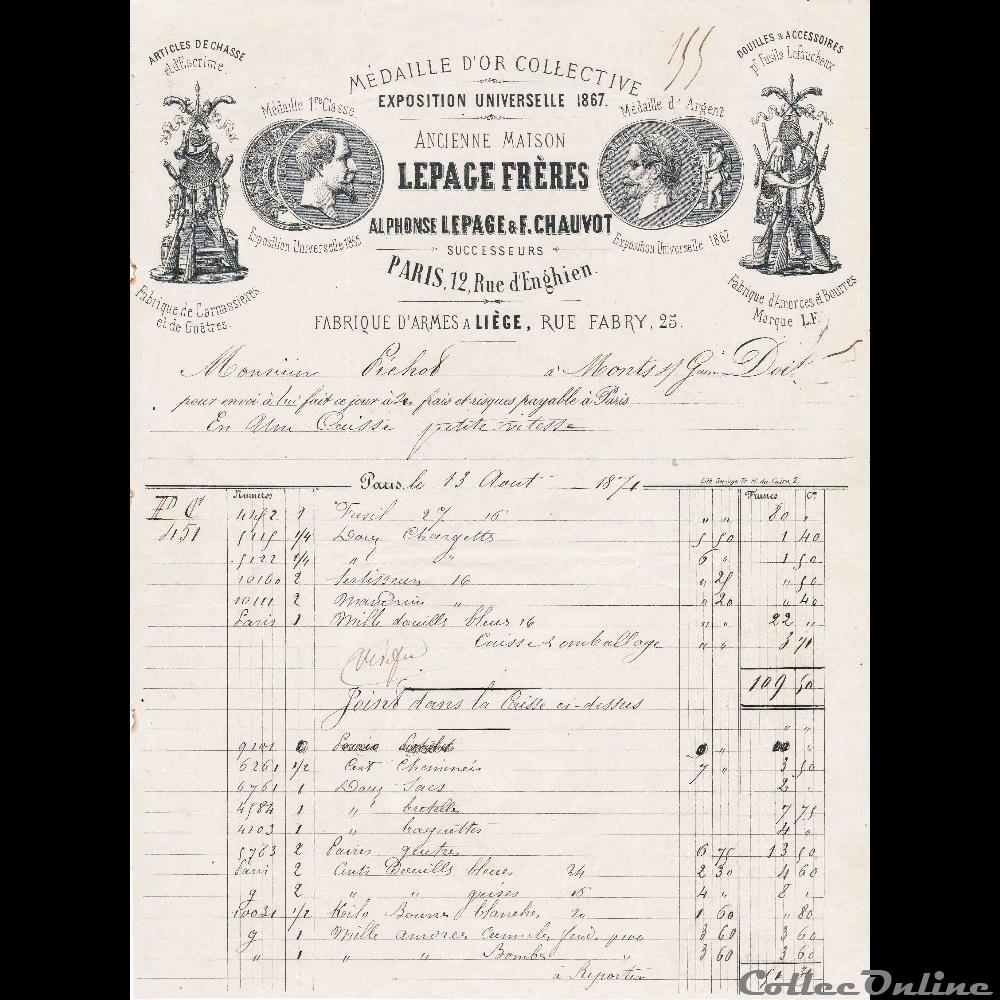 155
ARTICLES DE CHASSE
et d'Escrime.
DOUILLES & ACCESSOIRES
pr. Fusils Lefaucheux
MÉDAILLE D'OR COLLECTIVE
EXPOSITION UNIVERSELLE 1867.
Médaille 1re Classe
Médaille d'Argent
ANCIENNE MAISON
LEPAGE FRÈRES
ALPHONSE LEPAGE & F. CHAUVOT
Exposition Universelle 1855
Exposition Universelle 1867
SUCCESSEURS
PARIS, 12, Rue d'Enghien.
Fabrique de Carnassières
et de Guêtres.
Fabrique d'Amorces & Bourres
Marque L.F.
FABRIQUE D'ARMES A LIÈGE, RUE FABRY, 25.
Monsieur Pichot à Monts s/ Doit
pour envoi à lui fait ce jour à ses frais et risques payable à Paris
En Une Caisse petite vitesse
Paris, le 13 Aout 1871
Numéros Francs Cs
451 1 Fusil 27 16 " " 80 "
1/4 Douz Chargette 5 50 1 40
5122 1/4 " " 6 " 1 50
10160 2 Sertisseur 16 " 25 " 50
10111 2 Mandrin " " 20 " 40
Paris 1 Mille douills bleus 16 " " 22 "
Caisse & emballage " " 3 70
109 50
Joint dans la Caisse ci-dessus
9101
6261 1/2 Cent Cheminées 7 " 3 50
6761 1 Douz Sacs 2 "
4584 1 " bretelle 7 75
4103 1 " baguettes 4 "
5763 2 Paires guetres 6 75 13 50
Paris 2 Cents Douills bleues 24 2 30 4 60
g 2 " " grises 16 4 " 8 "
10031 1/2 Kilo Bourres blanches 20 1 60 " 80
g 1 Mille amorces 3 60 3 60
" 1 " " Bombe " 3 60 3 60
à Reporter
CollecOnline